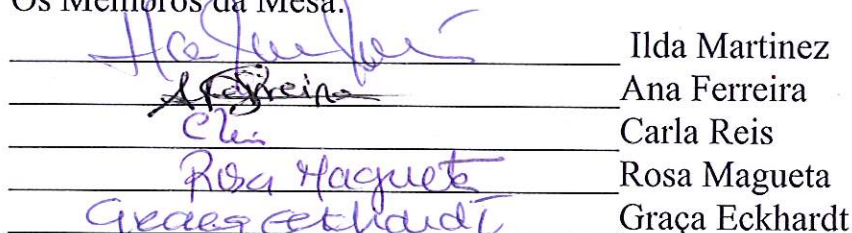 Os Membros da Mesa:
Ilda Martinez
AFerreira Ana Ferreira
CReis Carla Reis
Rosa Magueta Rosa Magueta
Graça Eckhardt Graça Eckhardt